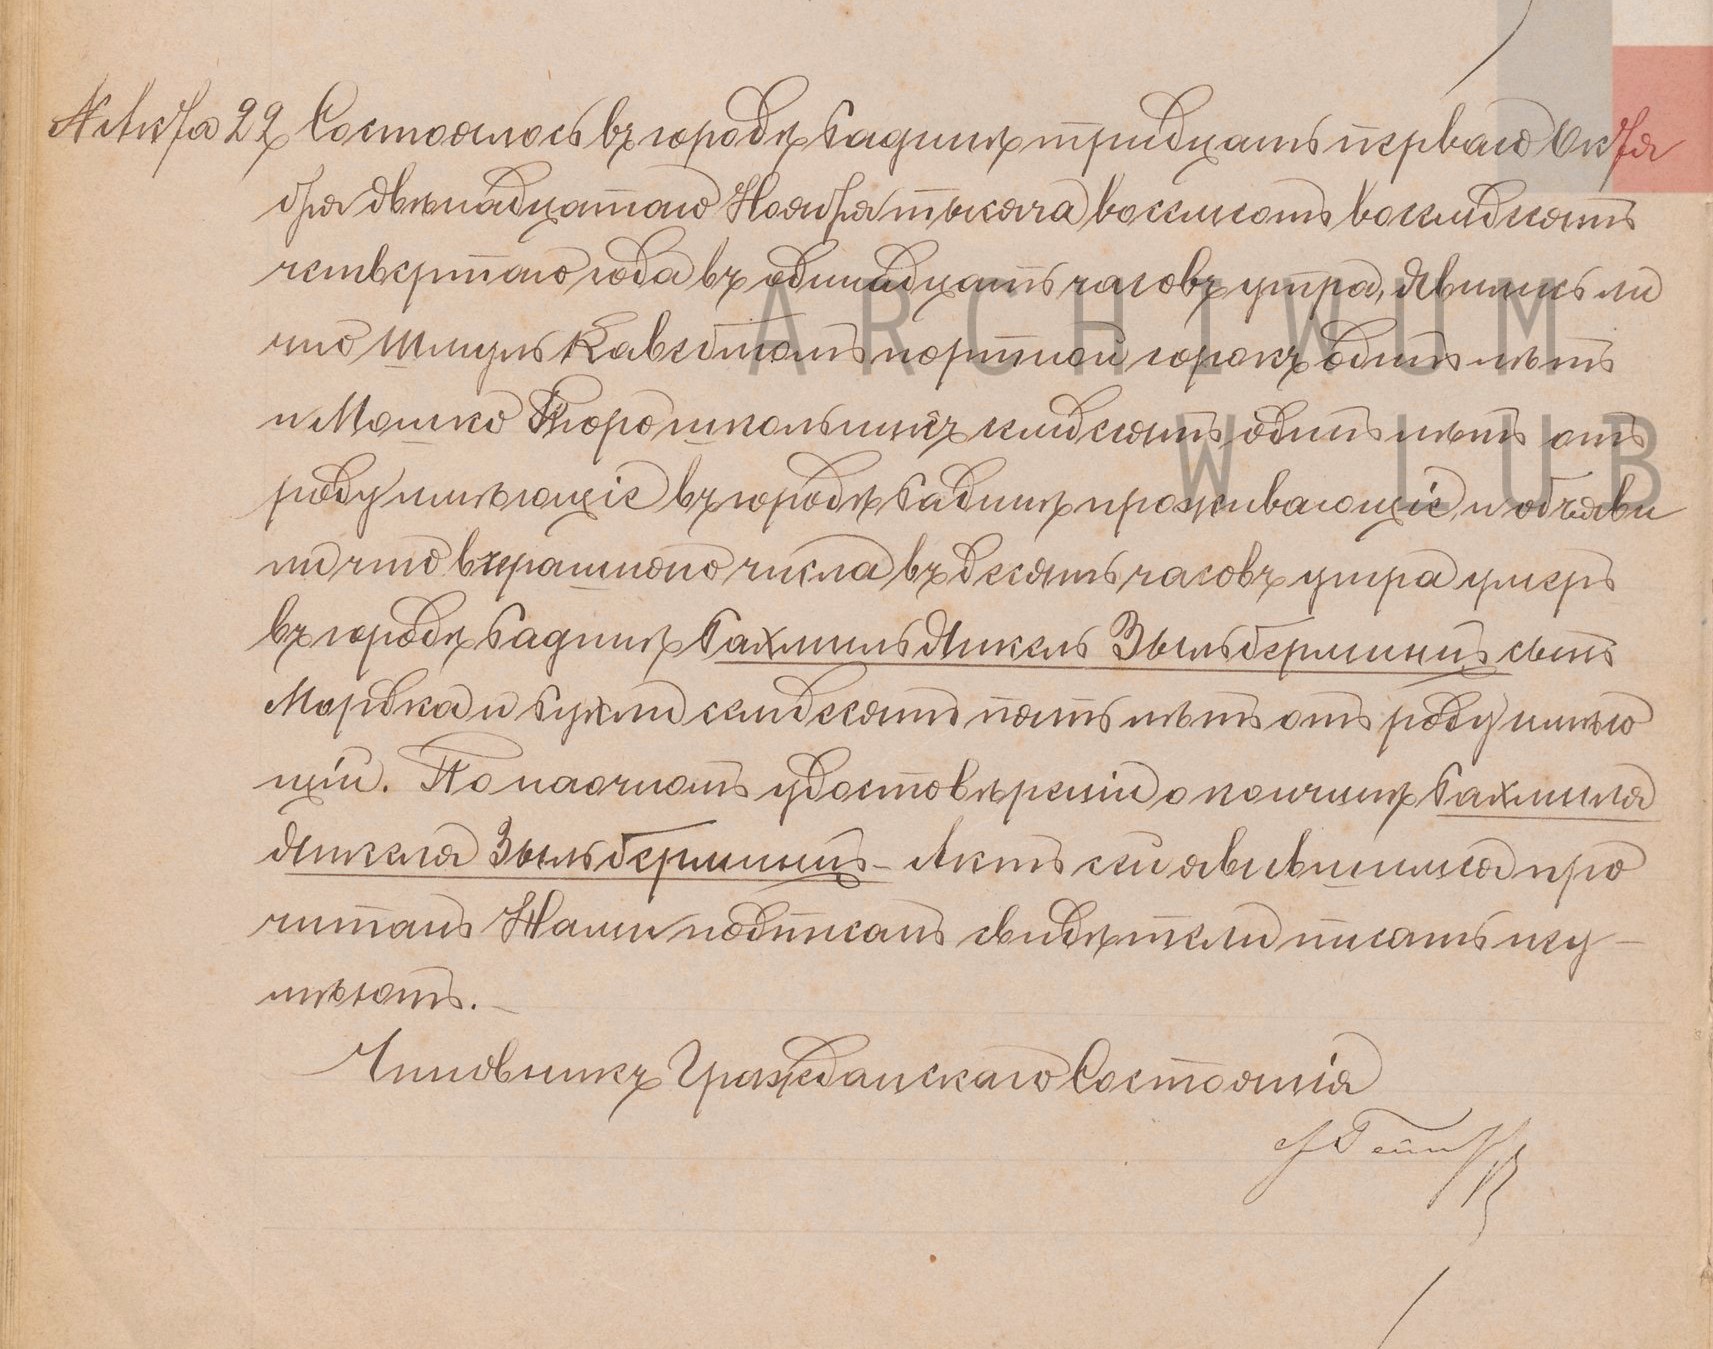 № Акта 22 Состоялось въ городѣ Радинѣ тридцать перваго Октя
бря двѣнадцатаго Ноября тысяча восемьсотъ восемьдесятъ
четвертаго года въ одинадцать часовъ утра, Явились ли
чно Шмуль портной сорокъ одинъ лѣтъ
и Мошко школьникъ семдесятъ одинъ лѣтъ отъ
роду имѣющіе въ городѣ Радинѣ проживающіе, и объяви
ли что вчерашнего числа въ десять часовъ утра умеръ
въ городѣ Радинѣ Рахмиль Янкель Зыльберминцъ сынъ
Мордка и Рухли семдесятъ пять лѣтъ отъ роду имѣю
щій. По наочномъ удостовѣреніи о кончинѣ Рахмиля
Янкеля Зыльберминцъ - Актъ сей явившимся про
читанъ Нами подписанъ свидѣтели писать неу-
мѣютъ. -
Чиновникъ Гражданскаго Состоянія
ARCHIWUM
W LUB